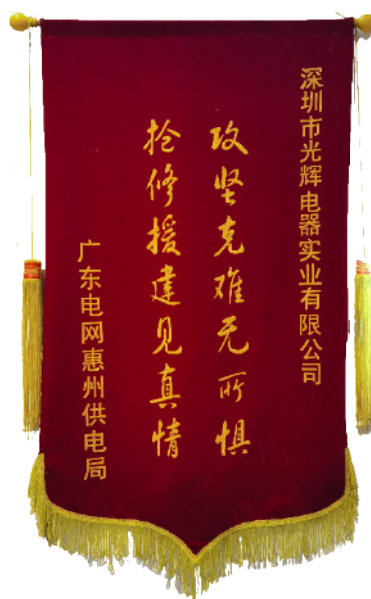 深圳市光辉电器实业有限公司
攻坚克难无所惧
抢修援建见真情
广东电网惠州供电局